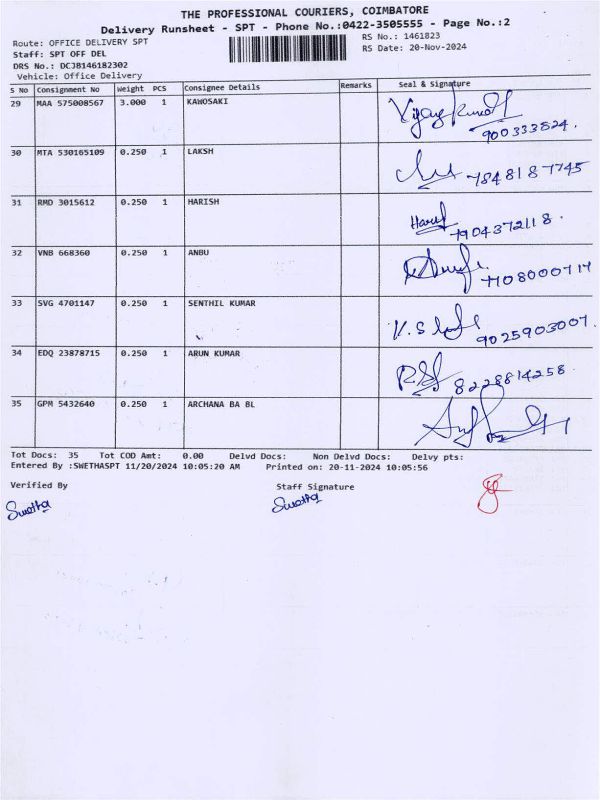 THE PROFESSIONAL COURIERS, COIMBATORE
Delivery Runsheet - SPT - Phone No.:0422-3505555 - Page No.:2
Route: OFFICE DELIVERY SPT
RS No.: 1461823
Staff: SPT OFF DEL
RS Date: 20-Nov-2024
DRS No.: DCJ8146182302
Vehicle: Office Delivery
S No Consignment No Weight PCS Consignee Details Remarks Seal & Signature
29 MAA 575008567 3.000 1 KAWOSAKI
900333524.
30 MTA 530165109 0.250 1 LAKSH
7848187745
31 RMD 3015612 0.250 1 HARISH Harish
7904372118.
32 VNB 668360 0.250 1 ANBU
7708000717
33 SVG 4701147 0.250 1 SENTHIL KUMAR
9025903007.
34 EDQ 23878715 0.250 1 ARUN KUMAR
8228814258.
35 GPM 5432640 0.250 1 ARCHANA BA BL
Tot Docs: 35 Tot COD Amt: 0.00 Delvd Docs: Non Delvd Docs: Delvy pts:
Entered By :SWETHASPT 11/20/2024 10:05:20 AM Printed on: 20-11-2024 10:05:56
Verified By Staff Signature
Swetha Swetha